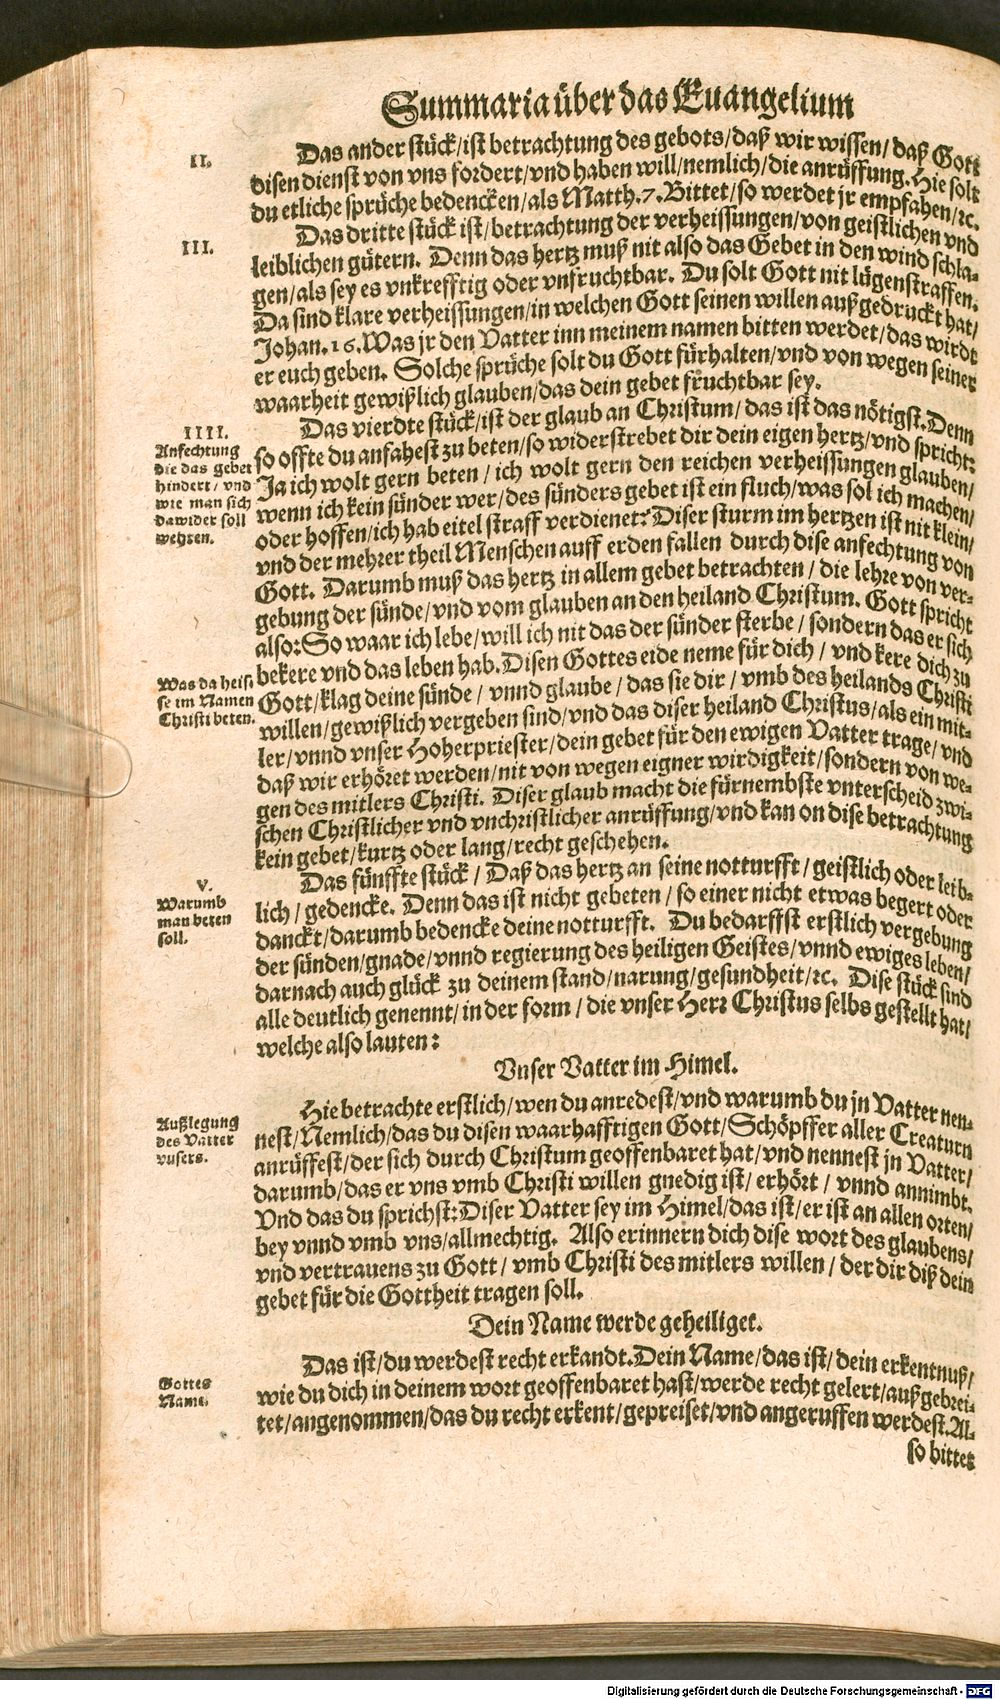 Summaria über das Euangelium
II.
Das ander stück/ist betrachtung des gebots/daß wir wissen/daß Gott
disen dienst von vns fordert/vnd haben will/nemlich/die anrüffung. Hie solt
du etliche sprüche bedencken/als Matth.7. Bittet/so werdet jr empfahen/ꝛc.
III.
Das dritte stück ist/betrachtung der verheissungen/von geistlichen vnd
leiblichen gütern. Denn das hertz muß nit also das Gebet in den wind schla-
gen/als sey es vnkrefftig oder vnfruchtbar. Du solt Gott nit lügenstraffen.
Da sind klare verheissungen/in welchen Gott seinen willen außgedruckt hat/
Johan.16. Was jr den Vatter inn meinem namen bitten werdet/das wirdt
er euch geben. Solche sprüche solt du Gott fürhalten/vnd von wegen seiner
waarheit gewißlich glauben/das dein gebet fruchtbar sey.
IIII.
Anfechtung
die das gebet
hindert/vnd
wie man sich
dawider soll
wehren.
Das vierdte stück/ist der glaub an Christum/das ist das nötigst. Denn
so offte du anfahest zu beten/so widerstrebet dir dein eigen hertz/vnd spricht:
Ja ich wolt gern beten/ich wolt gern den reichen verheissungen glauben/
wenn ich kein sünder wer/des sünders gebet ist ein fluch/was sol ich machen/
oder hoffen/ich hab eitel straff verdienet: Diser sturm im hertzen ist nit klein/
vnd der mehrer theil Menschen auff erden fallen durch dise anfechtung von
Gott. Darumb muß das hertz in allem gebet betrachten/die lehre von ver-
gebung der sünde/vnd vom glauben an den heiland Christum. Gott spricht
also: So waar ich lebe/will ich nit das der sünder sterbe/sondern das er sich
bekere vnd das leben hab. Disen Gottes eide neme für dich/vnd kere dich zu
Was da heis
se im Namen
Christi beten.
Gott/klag deine sünde/vnnd glaube/das sie dir/vmb des heilands Christi
willen/gewißlich vergeben sind/vnd das diser heiland Christus/als ein mit-
ler/vnnd vnser Hoherpriester/dein gebet für den ewigen Vatter trage/vnd
daß wir erhöret werden/nit von wegen eigner wirdigkeit/sondern von we-
gen des mitlers Christi. Diser glaub macht die fürnembste vnterscheid zwi-
schen Christlicher vnd vnchristlicher anrüffung/vnd kan on dise betrachtung
kein gebet/kurtz oder lang/recht geschehen.
V.
Warumb
man beten
soll.
Das fünffte stück/Daß das hertz an seine notturfft/geistlich oder leib-
lich/gedencke. Denn das ist nicht gebeten/so einer nicht etwas begert oder
danckt/darumb bedencke deine notturfft. Du bedarffst erstlich vergebung
der sünden/gnade/vnnd regierung des heiligen Geistes/vnnd ewiges leben/
darnach auch glück zu deinem stand/narung/gesundheit/ꝛc. Dise stück sind
alle deutlich genennt/in der form/die vnser Herr Christus selbs gestellt hat/
welche also lauten:
Vnser Vatter im Himel.
Außlegung
des Vatter
vnsers.
Hie betrachte erstlich/wen du anredest/vnd warumb du jn Vatter nen-
nest/Nemlich/das du disen waarhafftigen Gott/Schöpffer aller Creaturn
anrüffest/der sich durch Christum geoffenbaret hat/vnd nennest jn Vatter/
darumb/das er vns vmb Christi willen gnedig ist/erhört/vnnd annimbt.
Vnd das du sprichst: Diser Vatter sey im Himel/das ist/er ist an allen orten/
bey vnnd vmb vns/allmechtig. Also erinnern dich dise wort des glaubens/
vnd vertrauens zu Gott/vmb Christi des mitlers willen/der dir diß dein
gebet für die Gottheit tragen soll.
Dein Name werde geheiliget.
Gottes
Name.
Das ist/du werdest recht erkandt. Dein Name/das ist/dein erkentnuß/
wie du dich in deinem wort geoffenbaret hast/werde recht gelert/außgebrei-
tet/angenommen/das du recht erkent/gepreiset/vnd angeruffen werdest. Al-
so bittet
Digitalisierung gefördert durch die Deutsche Forschungsgemeinschaft - DFG